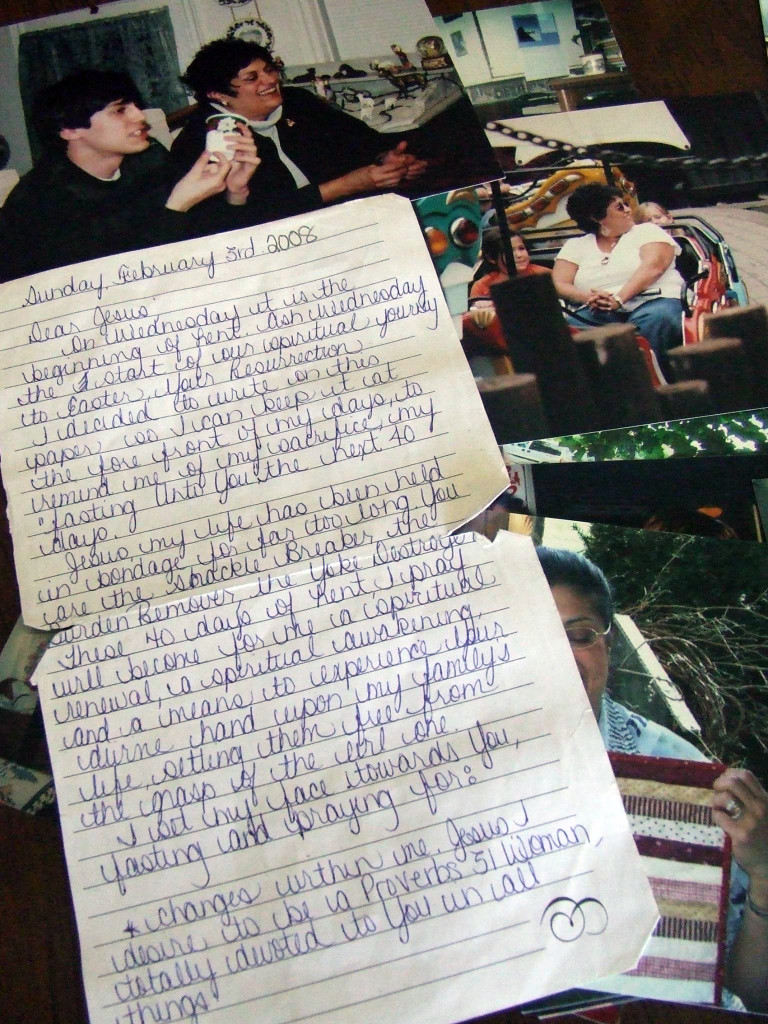 Sunday, February 3rd, 2008
Dear Jesus,
On Wednesday it is the
beginning of Lent. Ash Wednesday
the start of our spiritual journey
to Easter, Your Resurrection
I decided to write on this
paper, so I can keep it at
the fore front of my days, to
remind me of my sacrifice, my
"fasting Unto You" the next 40
days.
Jesus, my life has been held
in bondage for far too long You
are the Shackle Breaker, the
Burden Remover, the Yoke Destroyer
These 40 days of Lent, I pray
will become for me a spiritual
renewal, a spiritual awakening,
and a means to experience Your
divine hand upon my family's
life, setting them free from
the grasp of the evil one.
I set my face towards You,
fasting and praying for:
* changes within me. Jesus I
desire to be a Proverbs 31 Woman,
totally devoted to You in all
things